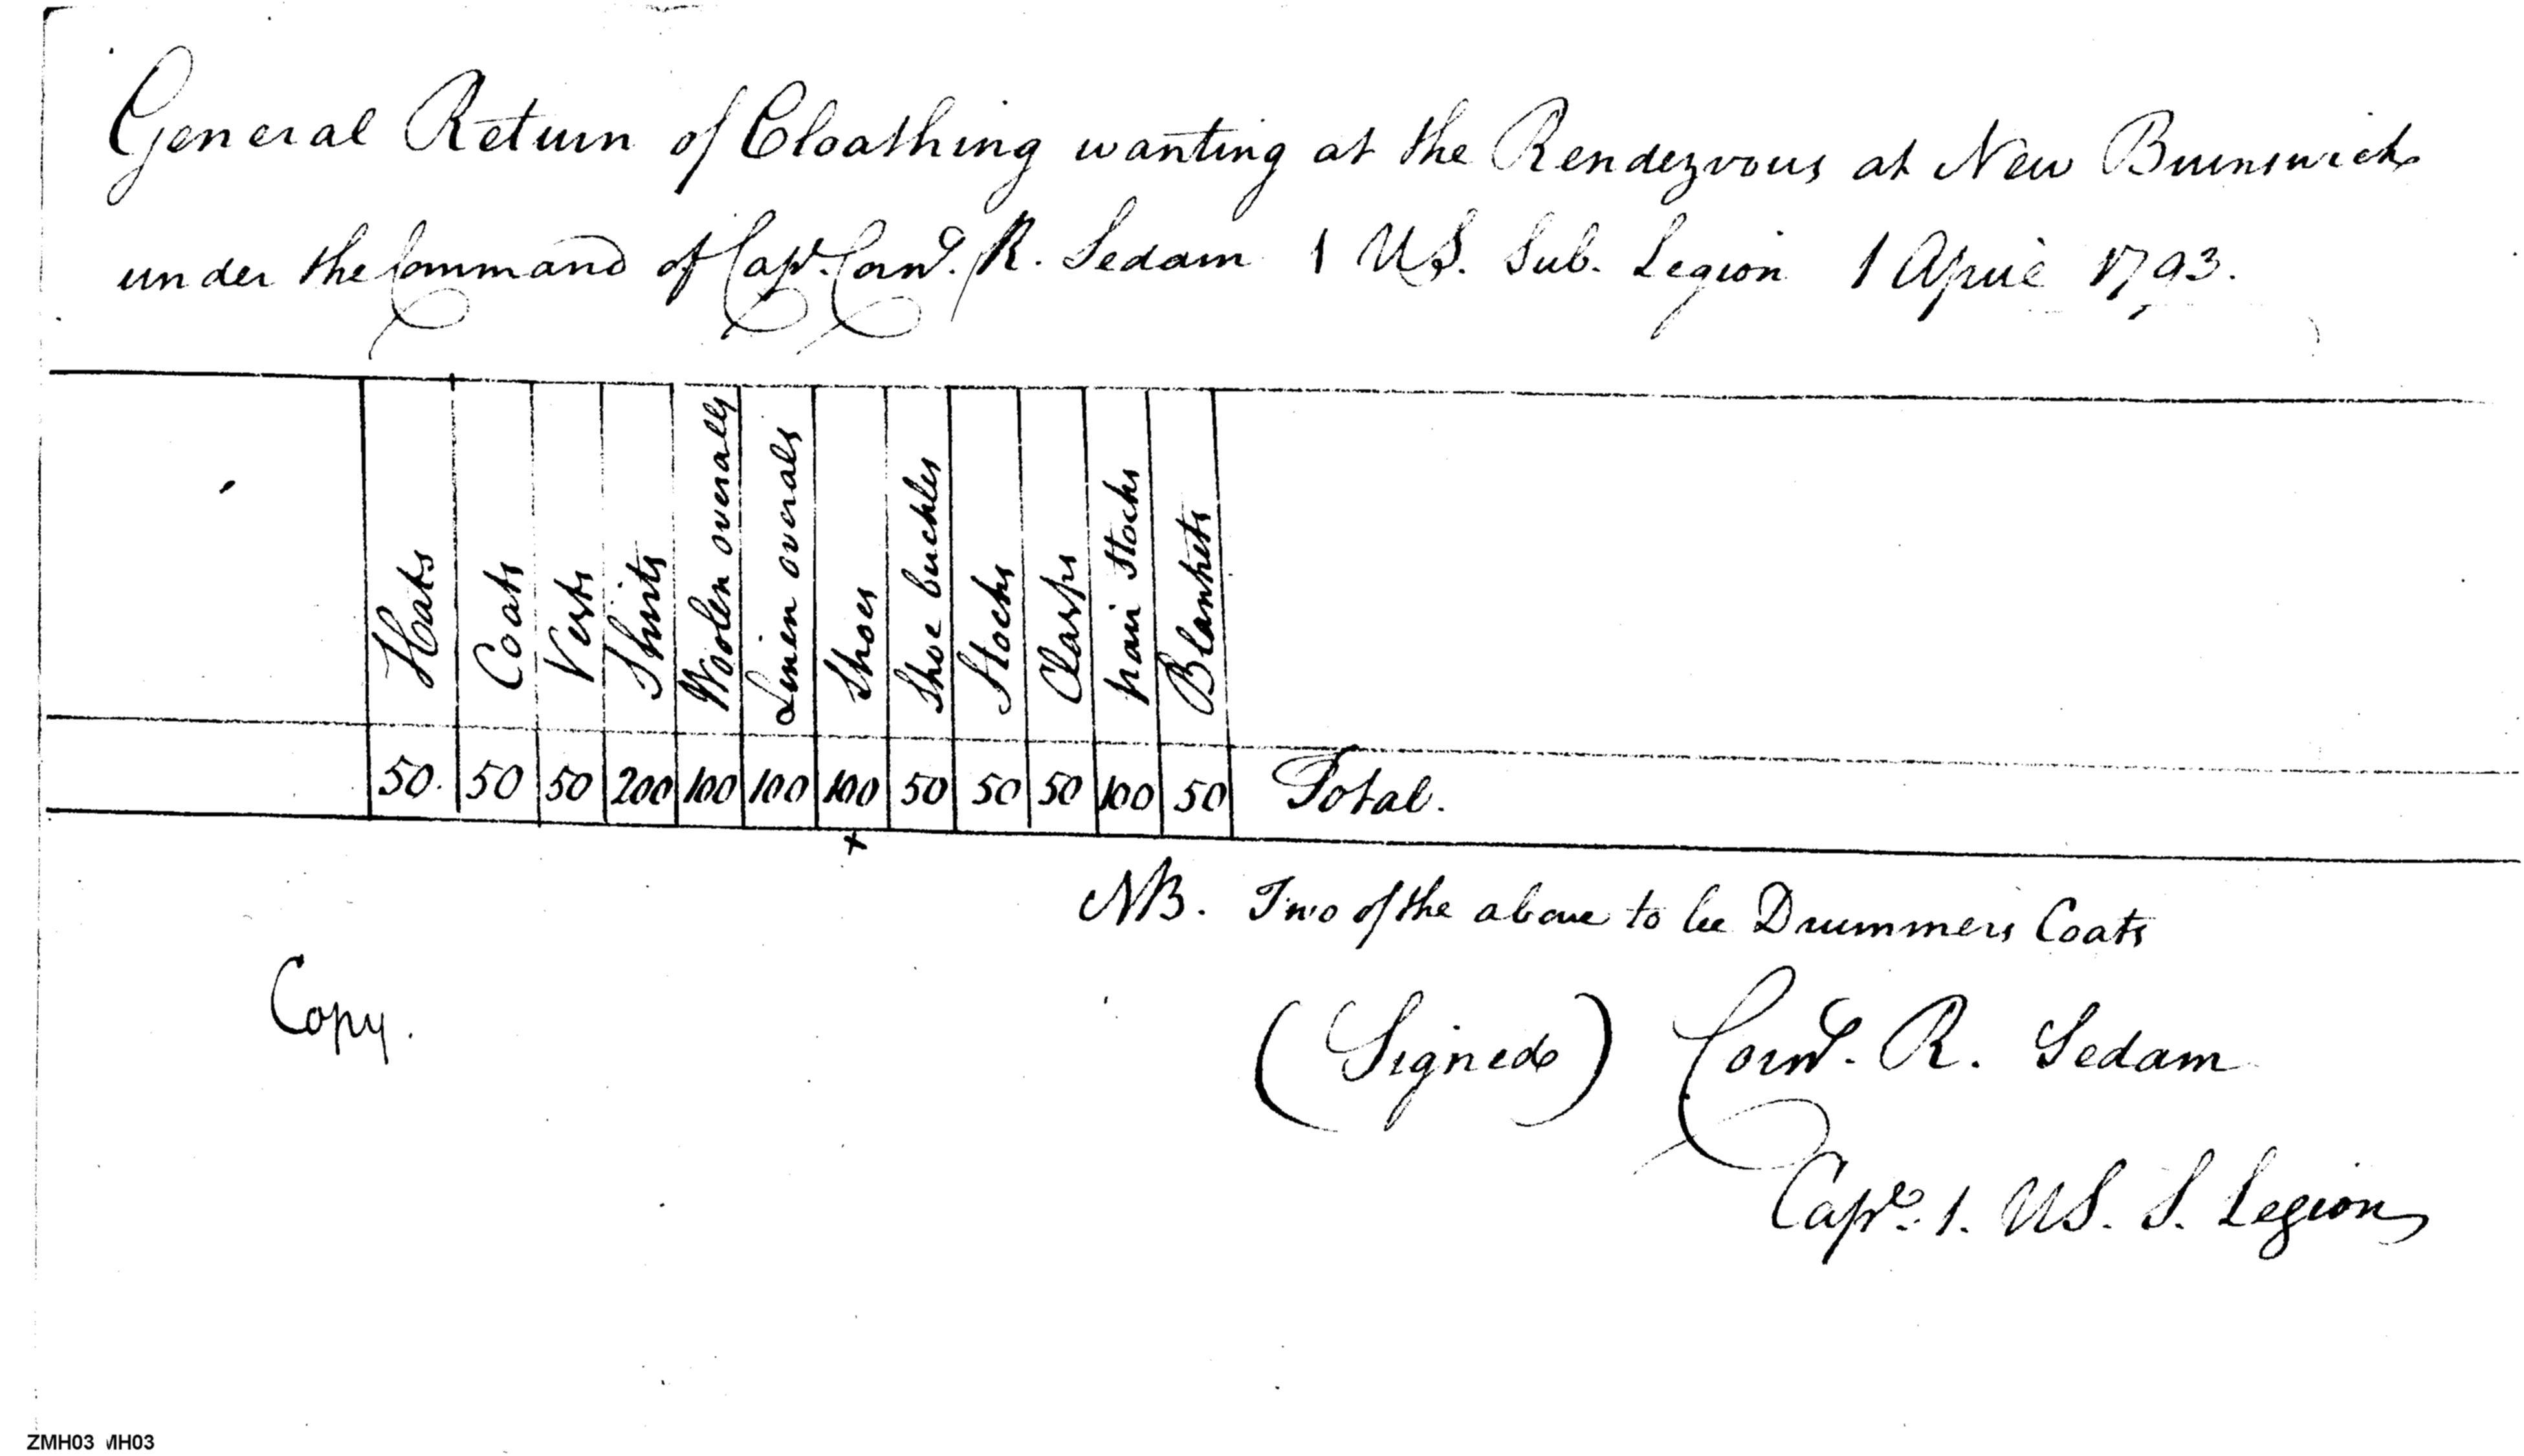 General Return of Cloathing wanting at the Rendezvous at New Brunswick
under the Command of Capt. Cornd. R. Sedam 1 US. Sub. Legion 1 April 1793.
Hats
Coats
Vests
Shirts
Woolen overalls
Linen overalls
Shoes
Shoe buckles
Stocks
Clasps
pair Stocks
Blankets
50. 50 50 200 100 100 100 50 50 50 100 50 Total.
+
NB. Two of the above to be Drummers Coats
Copy.
(Signed) Cornd. R. Sedam
Capt. 1. US. S. Legion
ZMH03 MH03